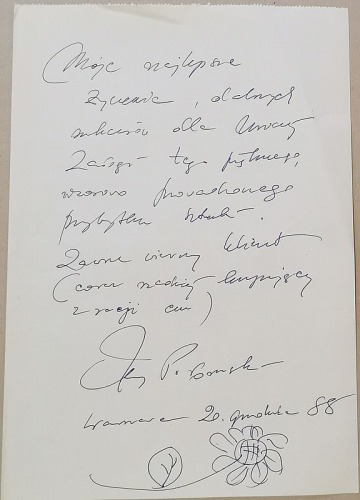 Moje najlepsze
życzenia, dalszych
sukcesów dla
tego pięknego,
wzorowo prowadzonego
przybytku sztuki.
Zawsze wierny klient
(coraz rzadziej kupujący
z racji cen)
Warszawa 20. grudnia 88